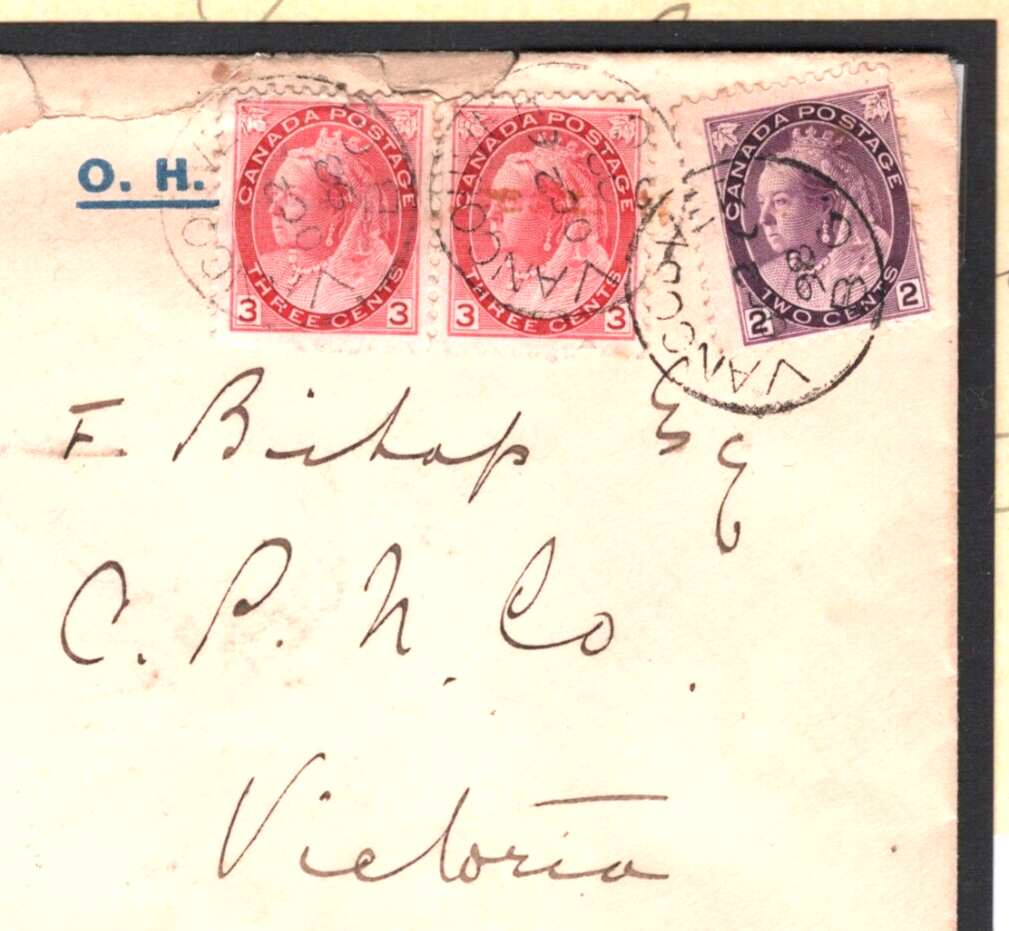 O. H.
CANADA POSTAGE
THREE CENTS
3 3
CANADA POSTAGE
THREE CENTS
3 3
CANADA POSTAGE
TWO CENTS
2 2
VANCOUVER
98
VANCOUVER
VANCOUVER
98
B C
F. Bishop Esq
C. P. N. Co.
Victoria